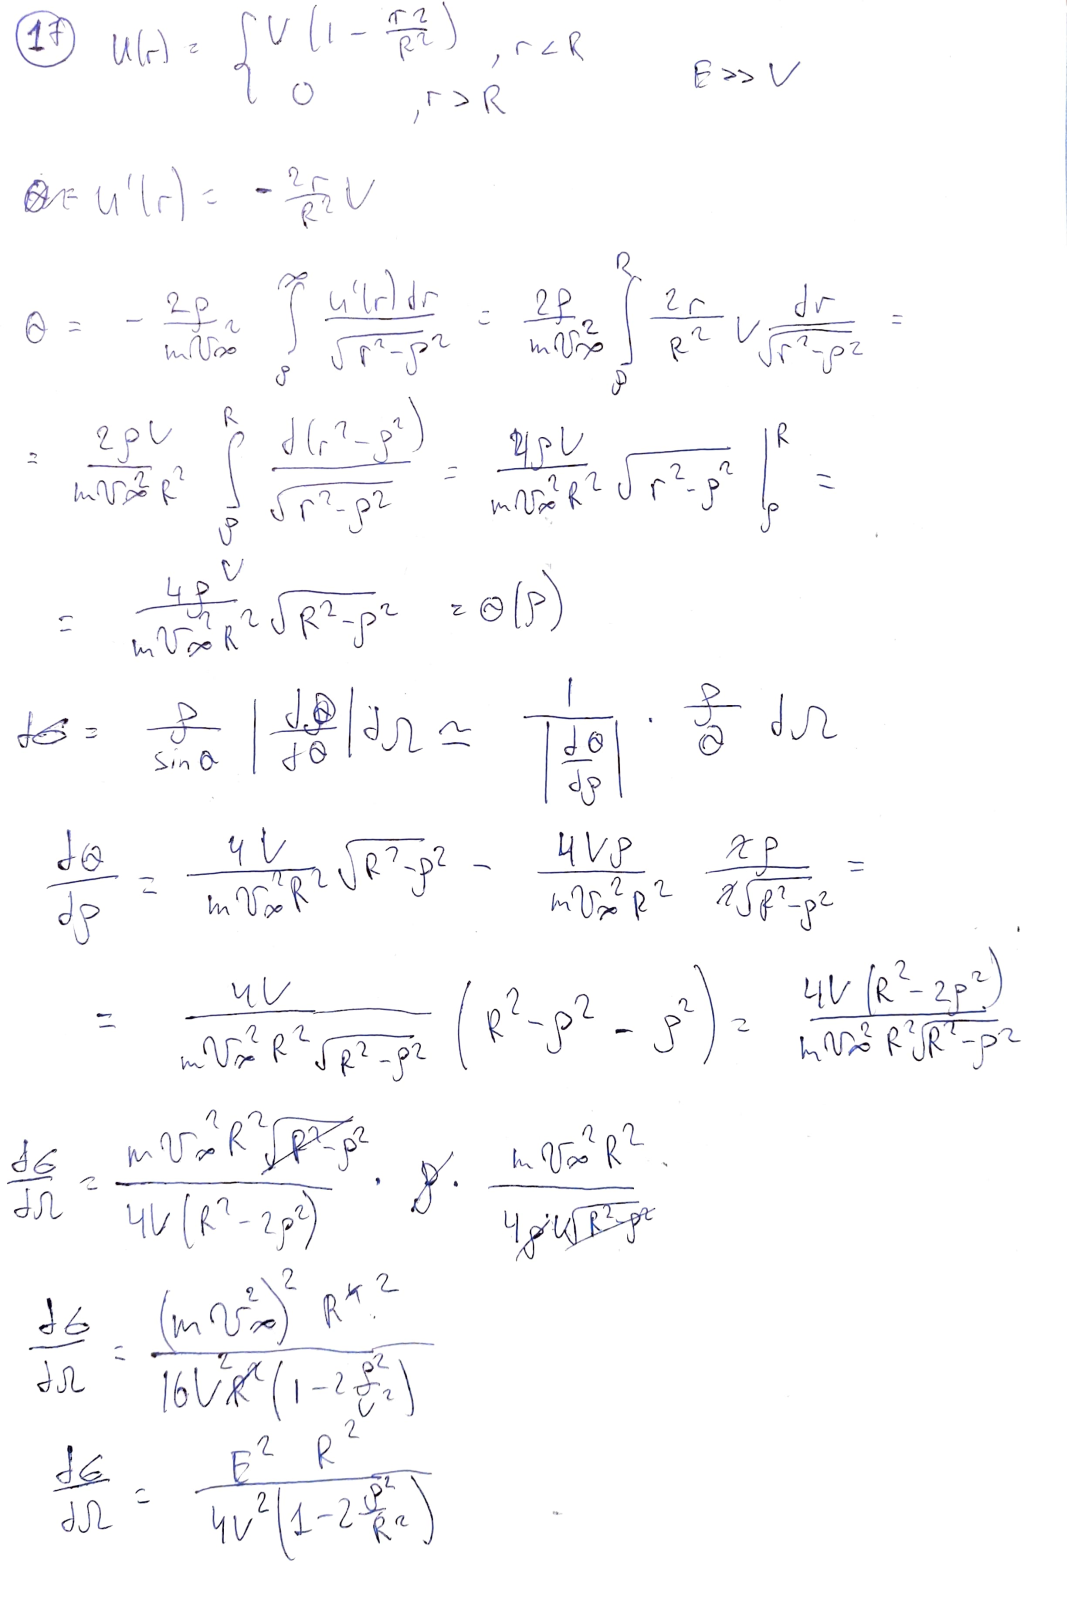 17 U(r) = { V (1 - r²/R²), r < R
0, r > R
E >> V
U'(r) = - 2r/R² V
θ = - 2ρ/(m𝒱∞²) ∫_ρ^∞ U'(r) dr/√(r²-ρ²) = 2ρ/(m𝒱∞²) ∫_ρ^R 2r/R² V dr/√(r²-ρ²) =
= 2ρV/(m𝒱∞² R²) ∫_ρ^R d(r²-ρ²)/√(r²-ρ²) = 4ρV/(m𝒱∞² R²) √(r²-ρ²) |_ρ^R =
= 4ρV/(m𝒱∞² R²) √(R²-ρ²) = θ(ρ)
dσ = ρ/sinθ |dρ/dθ| dΩ ≃ 1/|dθ/dρ| · ρ/θ dΩ
dθ/dρ = 4V/(m𝒱∞² R²) √(R²-ρ²) - 4Vρ/(m𝒱∞² R²) 2ρ/(2√(R²-ρ²)) =
= 4V/(m𝒱∞² R² √(R²-ρ²)) (R²-ρ² - ρ²) = 4V(R²-2ρ²)/(m𝒱∞² R² √(R²-ρ²))
dσ/dΩ = m𝒱∞² R² √(R²-ρ²)/(4V(R²-2ρ²)) · ρ · m𝒱∞² R²/(4ρV√(R²-ρ²))
dσ/dΩ = (m𝒱∞²)² R²/(16V² (1-2 ρ²/V²))
dσ/dΩ = E² R²/(4V² (1-2 ρ²/R²))